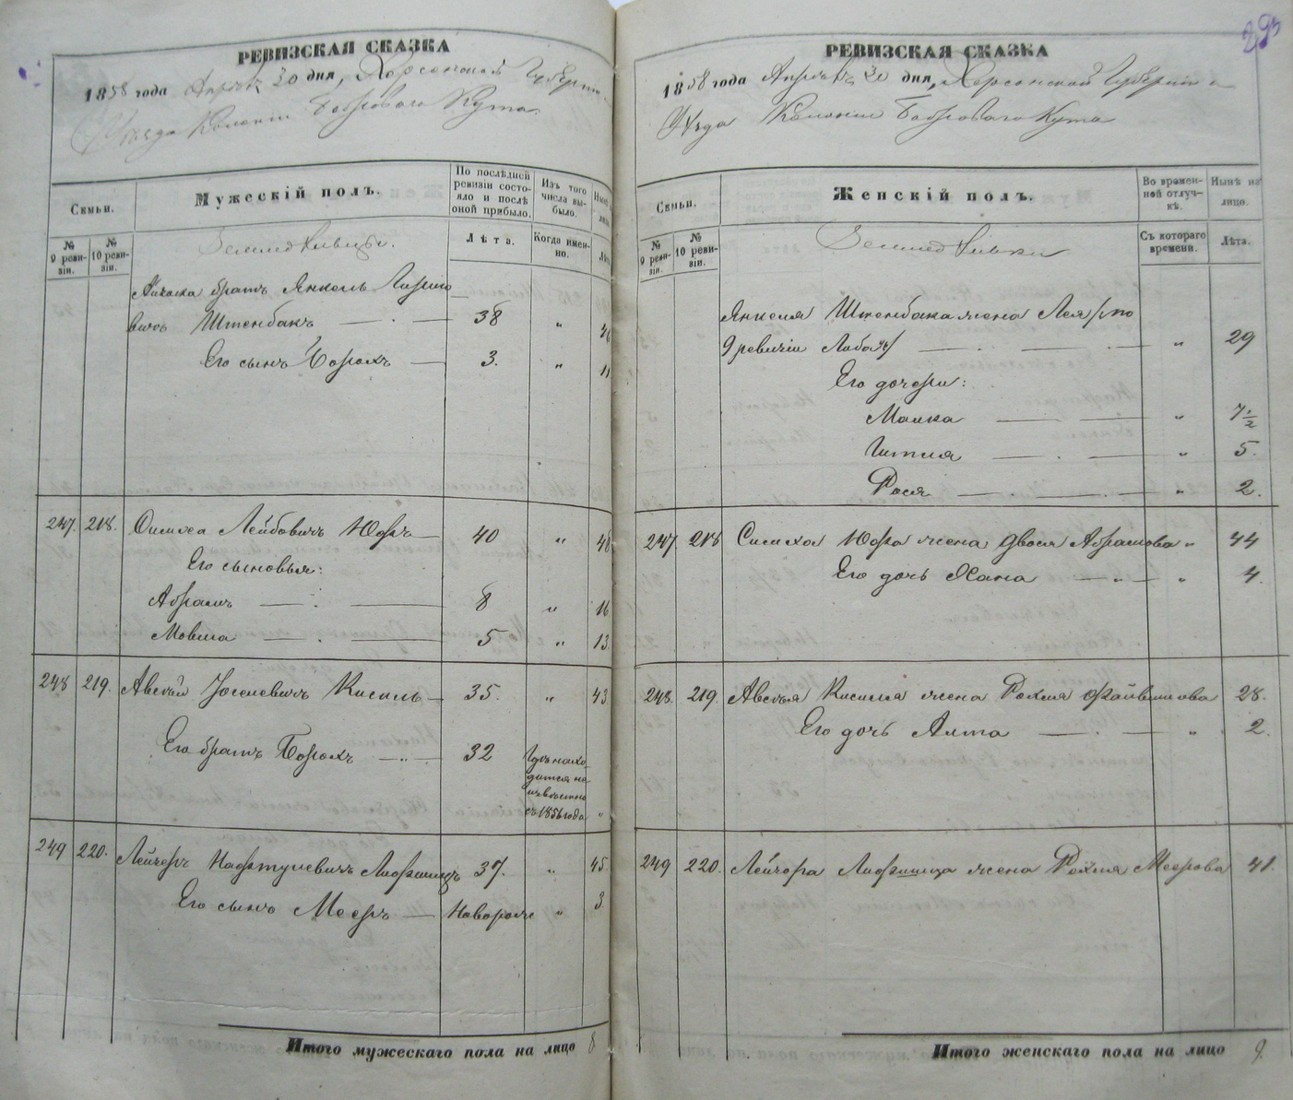 РЕВИЗСКАЯ СКАЗКА
1858 года Апреля 30 дня, Херсонской Губернии и
Уезда Колонии Бобрового Кута
Семьи.
Мужескій полъ.
По послѣдней ревизіи состояло и послѣ оной прибыло.
Изъ того числа выбыло.
№ 9 ревизіи.
№ 10 ревизіи.
Лѣта.
Когда именно.
Земледѣльцы.
братъ Янкель
вичъ Штенбакъ 38 „
Его сынъ Борохъ 3. „ 11
247. 218. Симха Лейбовичъ Юфъ 40 „ 48
Его сыновья:
Абрамъ 8 „ 16
Мовша 5 „ 13
248 219. Авсѣй Иоселевичъ Кисиль 35. „ 43
Его братъ Борохъ 32 Гдѣ находится неизвѣстно съ 1856 года „
249 220. Лейзеръ Нафтулевичъ Лифшицъ 37. „ 45.
Его сынъ Мееръ Новорож „ 8
Итого мужескаго пола на лицо 8
295
РЕВИЗСКАЯ СКАЗКА
1858 года Апреля 30 дня, Херсонской Губерніи и
Уезда Колоніи Бобрового Кута
Семьи.
Женскій полъ.
Во временной отлучкѣ.
Нынѣ на лицо.
№ 9 ревизіи.
№ 10 ревизіи.
Съ котораго времени.
Лѣта.
Земледѣльки
Янкеля Штенбака жена Лея /по
9 ревизіи Либа/ „ 29
Его дочери:
Малка „ 7½
Гитля „ 5.
Рася „ 2.
247 218 Симхи Юфа жена Двося Абрамова „ 44
Его дочь Хана „ 4.
248. 219. Авсѣя Кисиля жена Рохля Файвишова 28.
Его дочь Алта „ 2.
249 220. Лейзера Лифшица жена Рохля Меерова 41.
Итого женскаго пола на лицо 9.